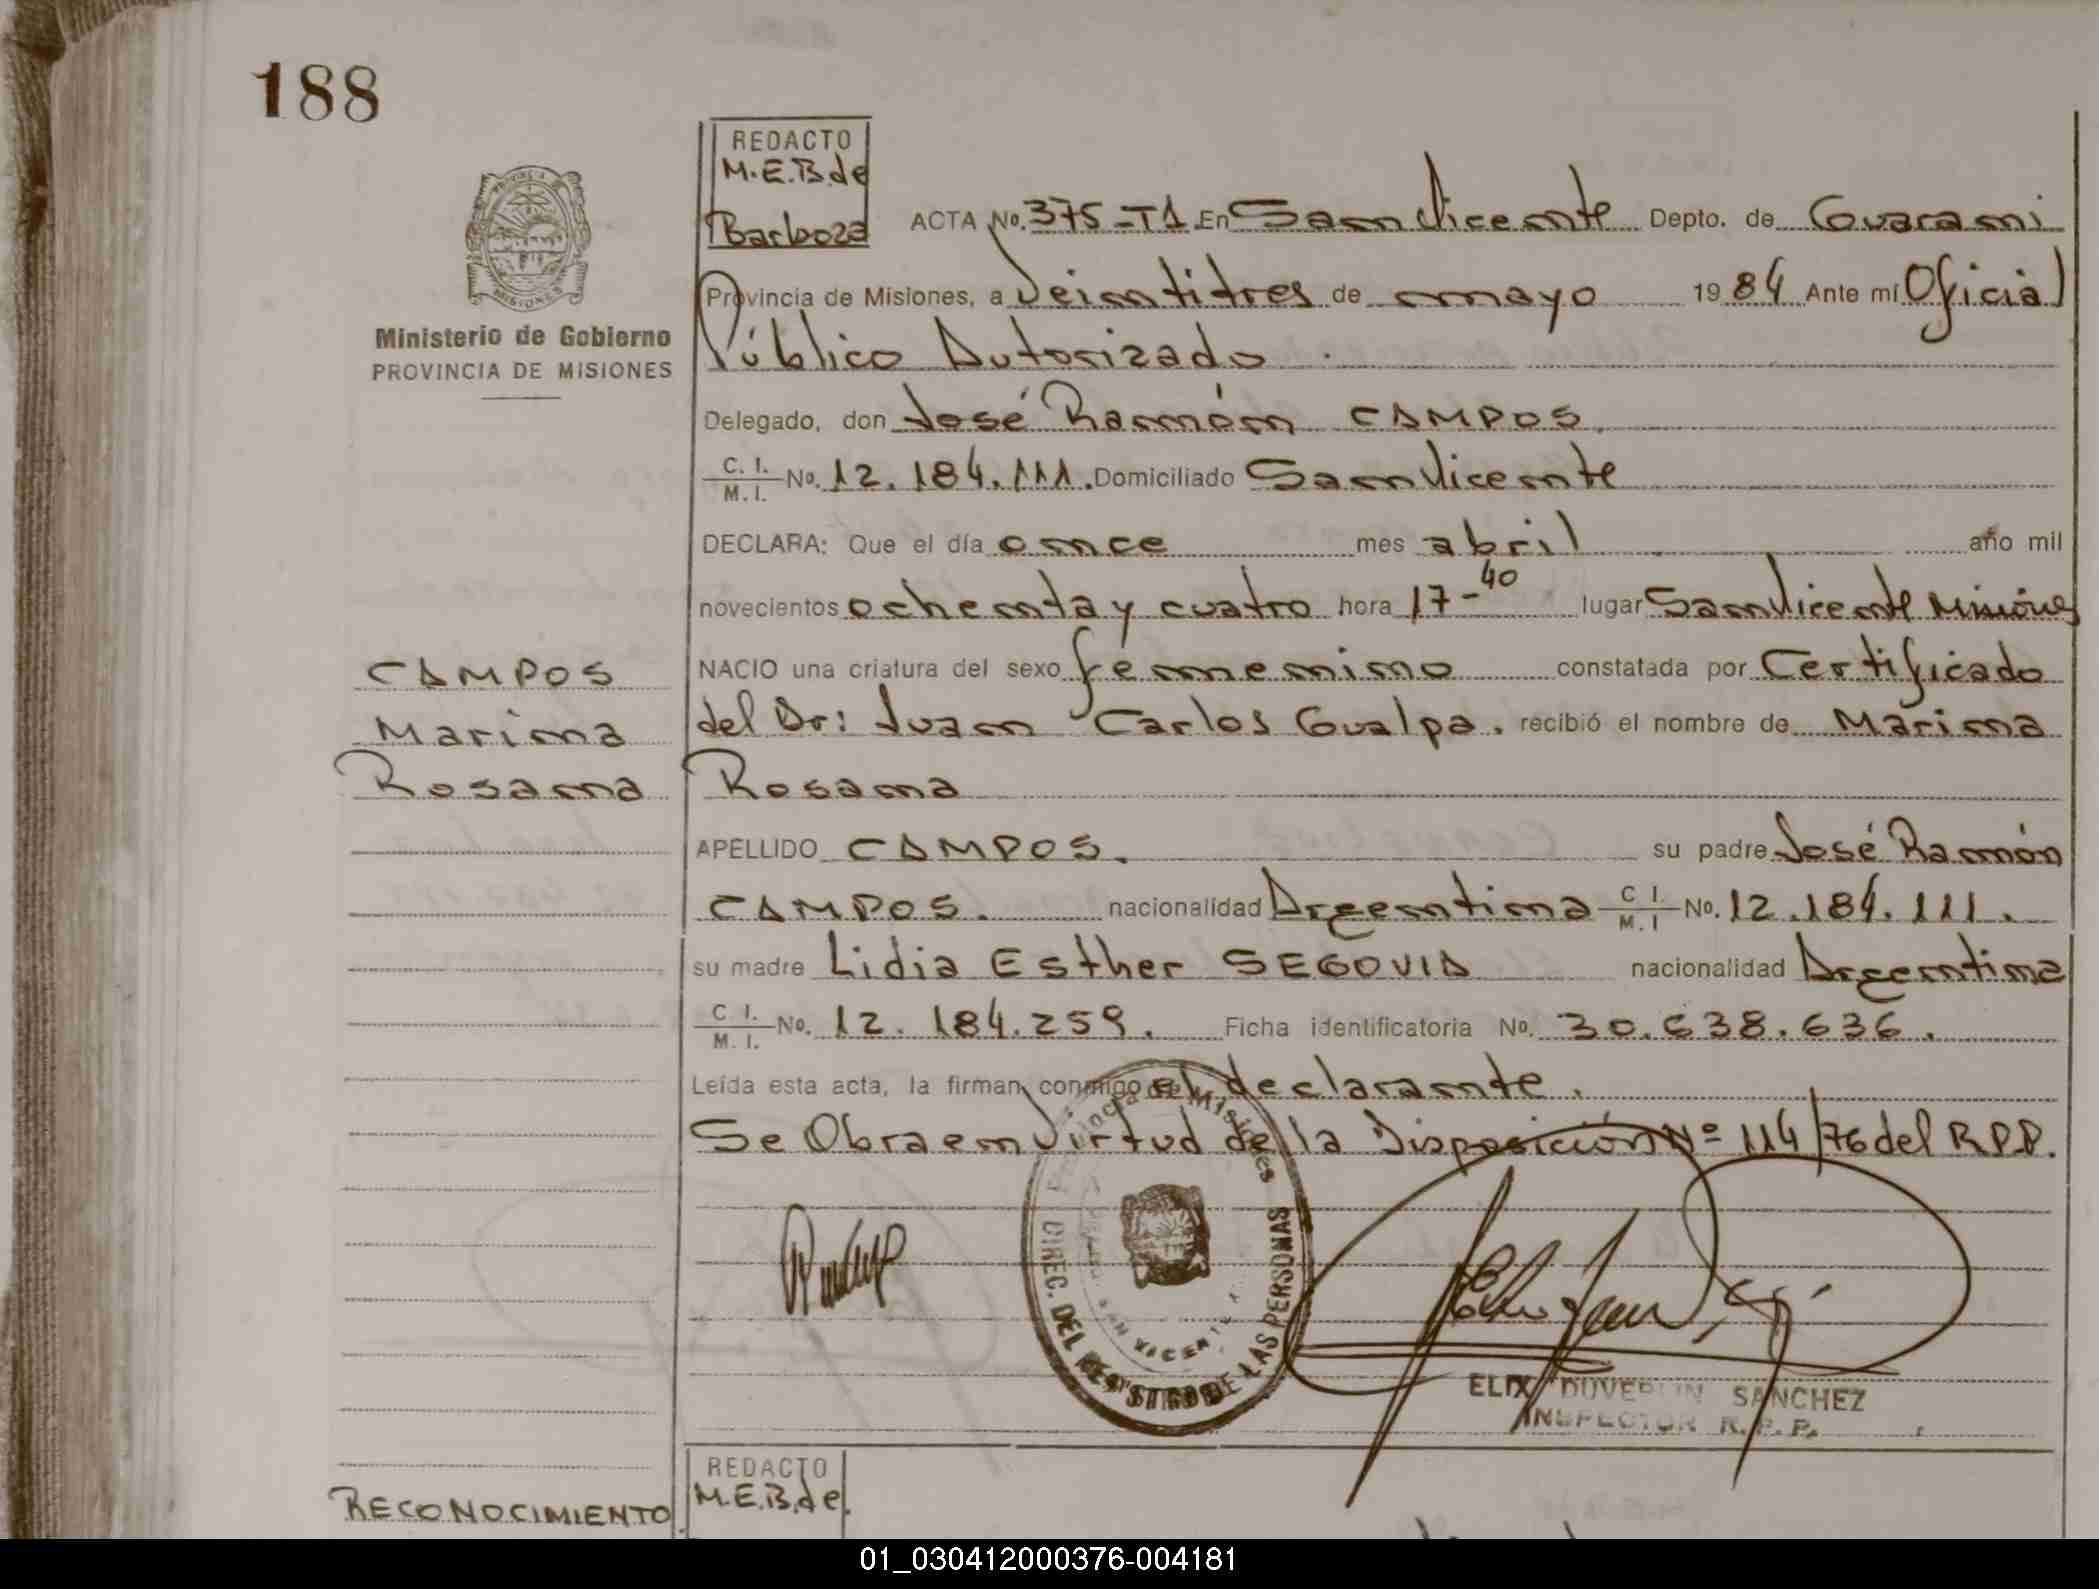 188
REDACTO
M.E.B. de
Barboza
ACTA No. 375-T1 En San Vicente Depto. de Guarani
Provincia de Misiones, a Veintitres de mayo 1984 Ante mí Oficial
Público Autorizado
Delegado, don José Ramón CAMPOS.
C. I.
M. I. No. 12.184.111. Domiciliado San Vicente
DECLARA: Que el día once mes abril año mil
novecientos ochenta y cuatro hora 17-40 lugar San Vicente Misiones
NACIO una criatura del sexo femenino constatada por Certificado
del Dr: Juan Carlos Gualpa. recibió el nombre de Marina
Rosana
APELLIDO CAMPOS. su padre José Ramón
CAMPOS. nacionalidad Argentina C I.
M. I No. 12.184.111.
su madre Lidia Esther SEGOVIA nacionalidad Argentina
C. I.
M. I. No. 12.184.259. Ficha identificatoria No. 30.638.636.
Leída esta acta, la firman conmigo el declarante.
Se Obra en virtud de la Disposición Nº 114/76 del R.P.P.
PROVINCIA
MISIONES
Ministerio de Gobierno
PROVINCIA DE MISIONES
CAMPOS
Marina
Rosana
Provincia de Misiones
DIREC. DEL REGISTRO DE LAS PERSONAS
SAN VICENTE
ELIX DUVERLIN SANCHEZ
INSPECTOR R. P. P.
RECONOCIMIENTO
REDACTO
M.E.B. de
01_030412000376-004181